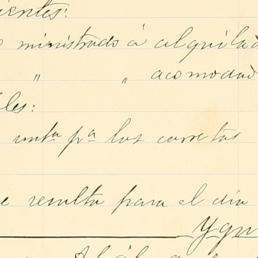 ientes:
ministrado á alquilad
" " acomodad
les:
unta pa las carretas
e resulta para el dia
Ygu